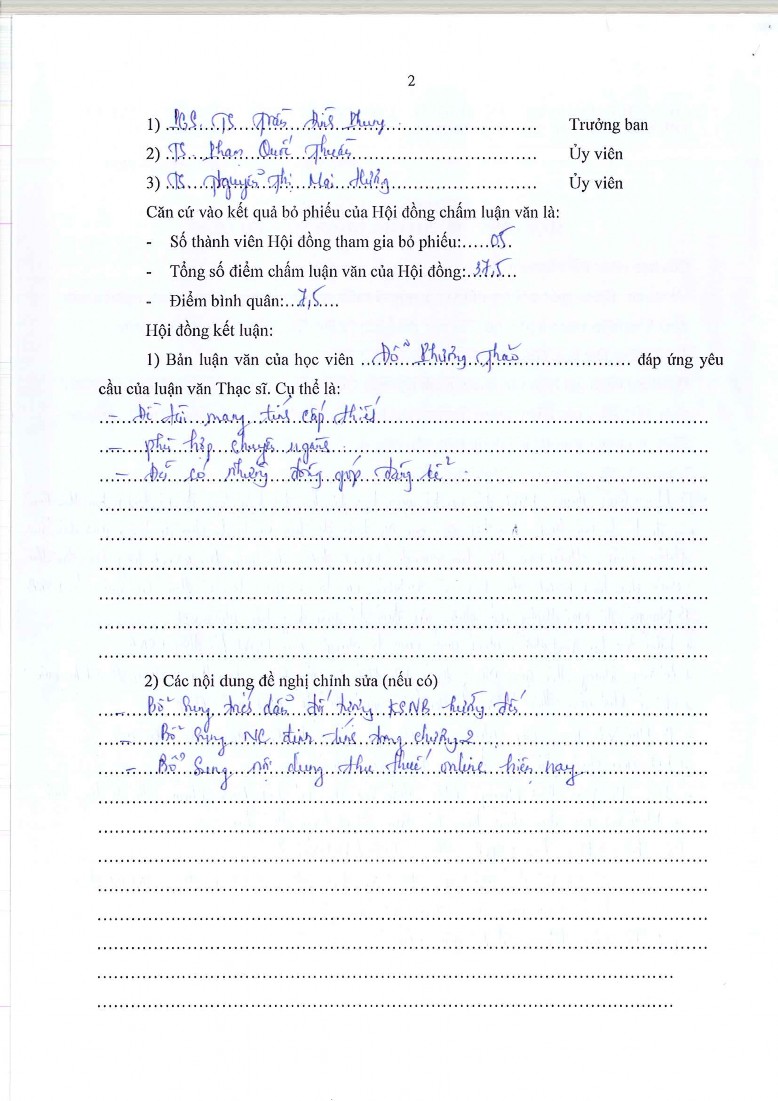 2
1) PGS. TS Trần Đình Phụng Trưởng ban
2) TS Phạm Quốc Thuần Ủy viên
3) TS Nguyễn Thị Mai Hương Ủy viên
Căn cứ vào kết quả bỏ phiếu của Hội đồng chấm luận văn là:
- Số thành viên Hội đồng tham gia bỏ phiếu: 05
- Tổng số điểm chấm luận văn của Hội đồng: 37,5
- Điểm bình quân: 7,5
Hội đồng kết luận:
1) Bản luận văn của học viên Đỗ Phương Thảo đáp ứng yêu
cầu của luận văn Thạc sĩ. Cụ thể là:
- Đề tài mang tính cấp thiết
- phù hợp chuyên ngành
- Đã có những đóng góp đáng kể
2) Các nội dung đề nghị chỉnh sửa (nếu có)
- Bổ sung dẫn đối tượng KSNB hướng đến
- Bổ sung NC định tính trong chương 2
- Bổ sung nội dung thu thuế online hiện nay